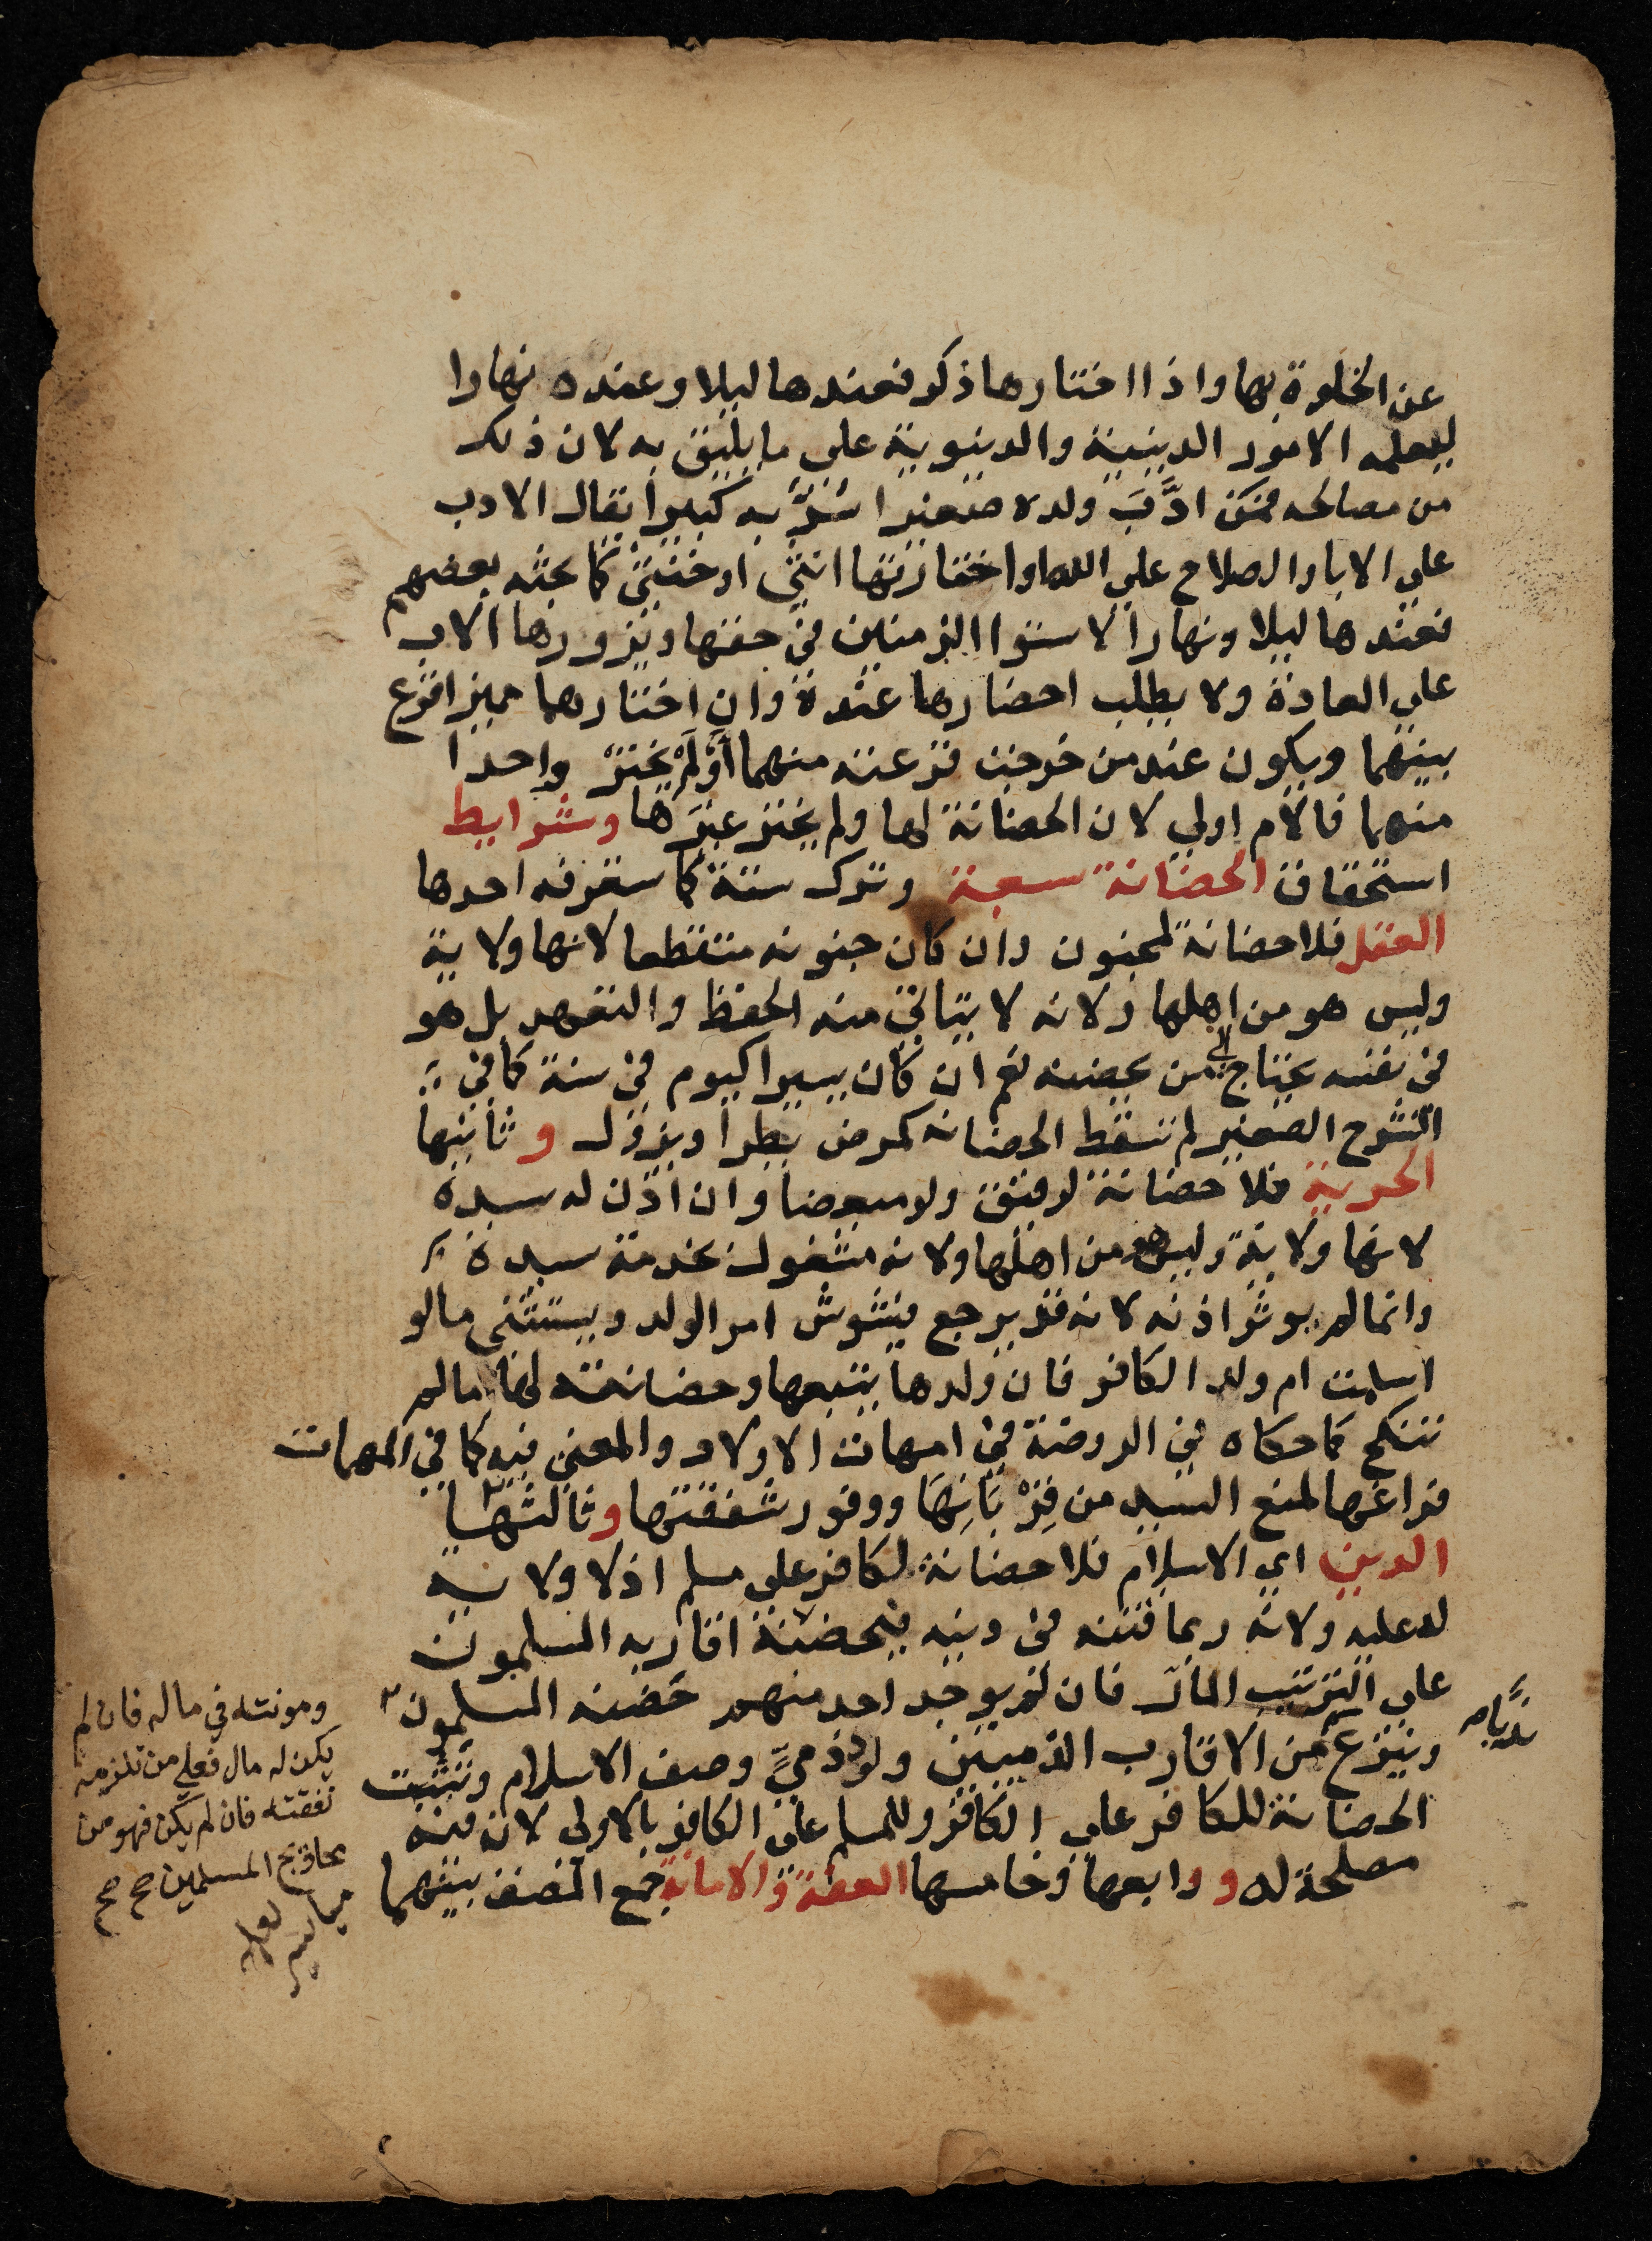 عن الخلوة بها واذا اختارها ذكر فعندها ليلا وعنده نهارا
ليعلمه الامور الدينية والدنيوية على ما يليق به لان ذلك
من مصالحه فمن ادَّبَ ولده صغيرا سُرَّ به كبيرا يقال الادب
على الابا والصلاح على الله او اختارتها انثى او خنثى كما بحثه بعضهم
فعندها ليلا ونهارا لاستوا الزمنين في حقها ويزورها الاب
على العادة ولا يطلب احضارها عنده وان اختارهما مميز اقرع
بينهما ويكون عند من خرجت قرعته منهما أوْ لَمْ يختر واحدا
منهما فالام اولى لان الحضانة لها ولم يختر غيرَها وشرايط
استحقاق الحضانة سبعة وترك ستة كما ستعرفه احدها
العقل فلا حضانة لمجنون وان كان جنونه متقطعا لانها ولاية
وليس هو من اهلها ولانه لا يتاتى منه الحفظ والتعهد بل هو
في نفسه يحتاج الى من يحضنه نعم ان كان يسيرا كيوم في سنة كما في
الشرح الصغير لم تسقط الحضانة كمرض يطرا ويزول وثانيها
الحرية فلا حضانة لرقيق ولو مبعضا وان اذن له سيده
لانها ولاية وليس هو من اهلها ولانه مشغول بخدمة سيده
وانما لم يوثر اذنه لانه قد يرجع فيشوش امر الولد ويستثنى ما لو
اسلمت ام ولد الكافر فان ولدها يتبعها وحضانته لها ما لم
تنكح كما حكاه في الروضة في امهات الاولاد والمعنى فيه كما في المهمات
فراغها لمنع السيد من قِرْبَانِهَا ووفور شفقتها وثالثها
الدين اي الاسلام فلا حضانة لكافر على مسلم اذ لا ولاية
له عليه ولانه ربما فتنه في دينه فيحضنه اقاربه المسلمون
على الترتيب المار فان لم يوجد احد منهم حَضنه المسلمون
وينزع من الاقارب الذميين ولد ذميٍّ وصف الاسلام وتثبت
الحضانة للكافر على الكافر وللمسلم على الكافر بالاولى لان فيه
مصلحة له و رابعها وخامسها العفة و الامانة جمع المصنف بينهما
ومونته في ماله فان لم
يكن له مال فعلى من تلزمه
نفقته فان لم يكن فهو من
محاويج المسلمين صح صح